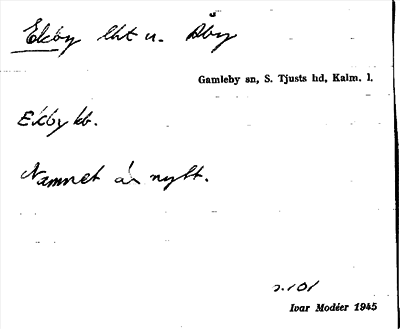 Ekby lht u. Åby
Gamleby sn, S. Tjusts hd, Kalm. l.
Ekby kb.
Namnet är nytt.
s. 101
Ivar Modéer 1945